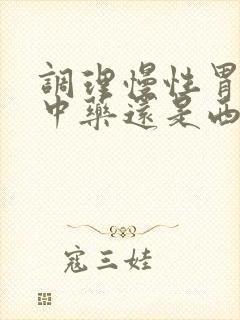 調理慢性胃
中藥還是西
寇三娃